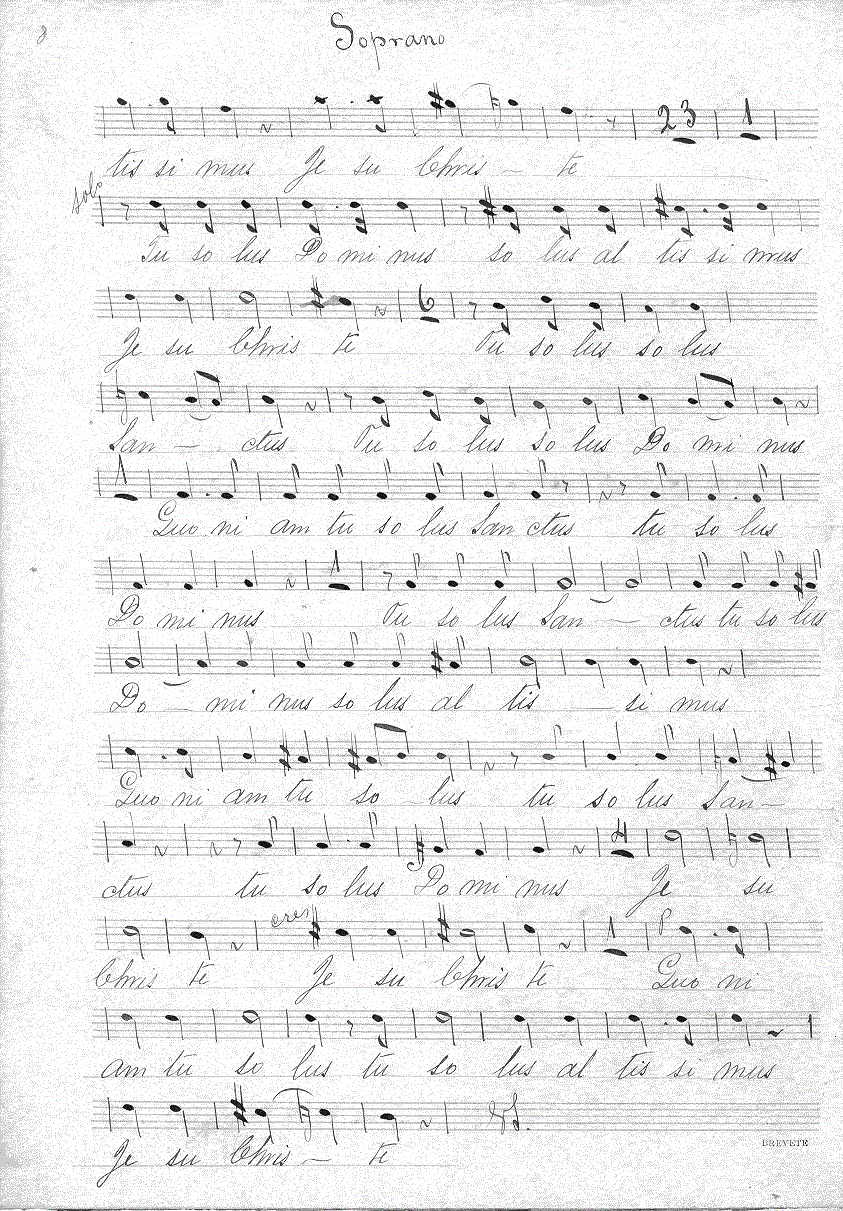 8
Soprano
23 1
tis si mus Je su Chris - te
solo
Tu so lus Do mi nus so lus al tis si mus
6
Je su Chris te Tu so lus so lus
San - ctus Tu so lus so lus Do mi nus
1
Quo ni am tu so lus San ctus tu so lus
1
Do mi nus Tu so lus San - ctus tu so lus
Do - mi nus so lus al tis - si mus
Quo ni am tu so - lus tu so lus San -
ctus tu so lus Do mi nus Je su
cres
1 P
Chris te Je su Chris te Quo ni
am tu so lus tu so lus al tis si mus
Je su Chris - te
BREVETÉ